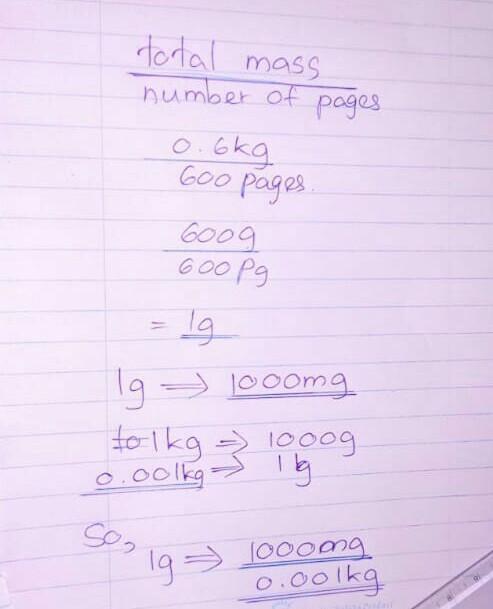 total mass
number of pages
0.6kg
600 pages.
600g
600 Pg
= 1g
1g ⇒ 1000mg
to 1kg ⇒ 1000g
0.001kg ⇒ 1g
So,
1g ⇒ 1000mg
0.001kg